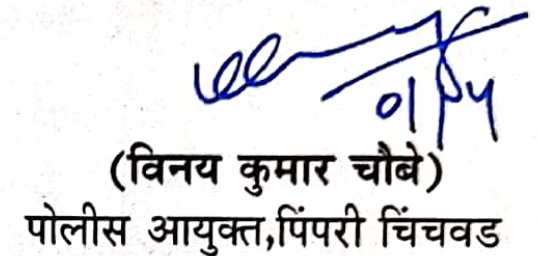 (विनय कुमार चौबे)
पोलीस आयुक्त,पिंपरी चिंचवड